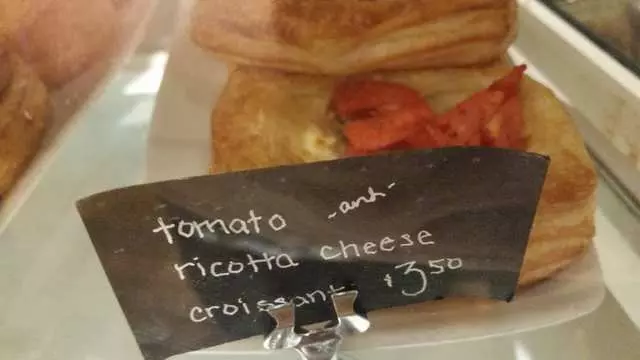 tomato -and-
ricotta cheese
croissant $3.50